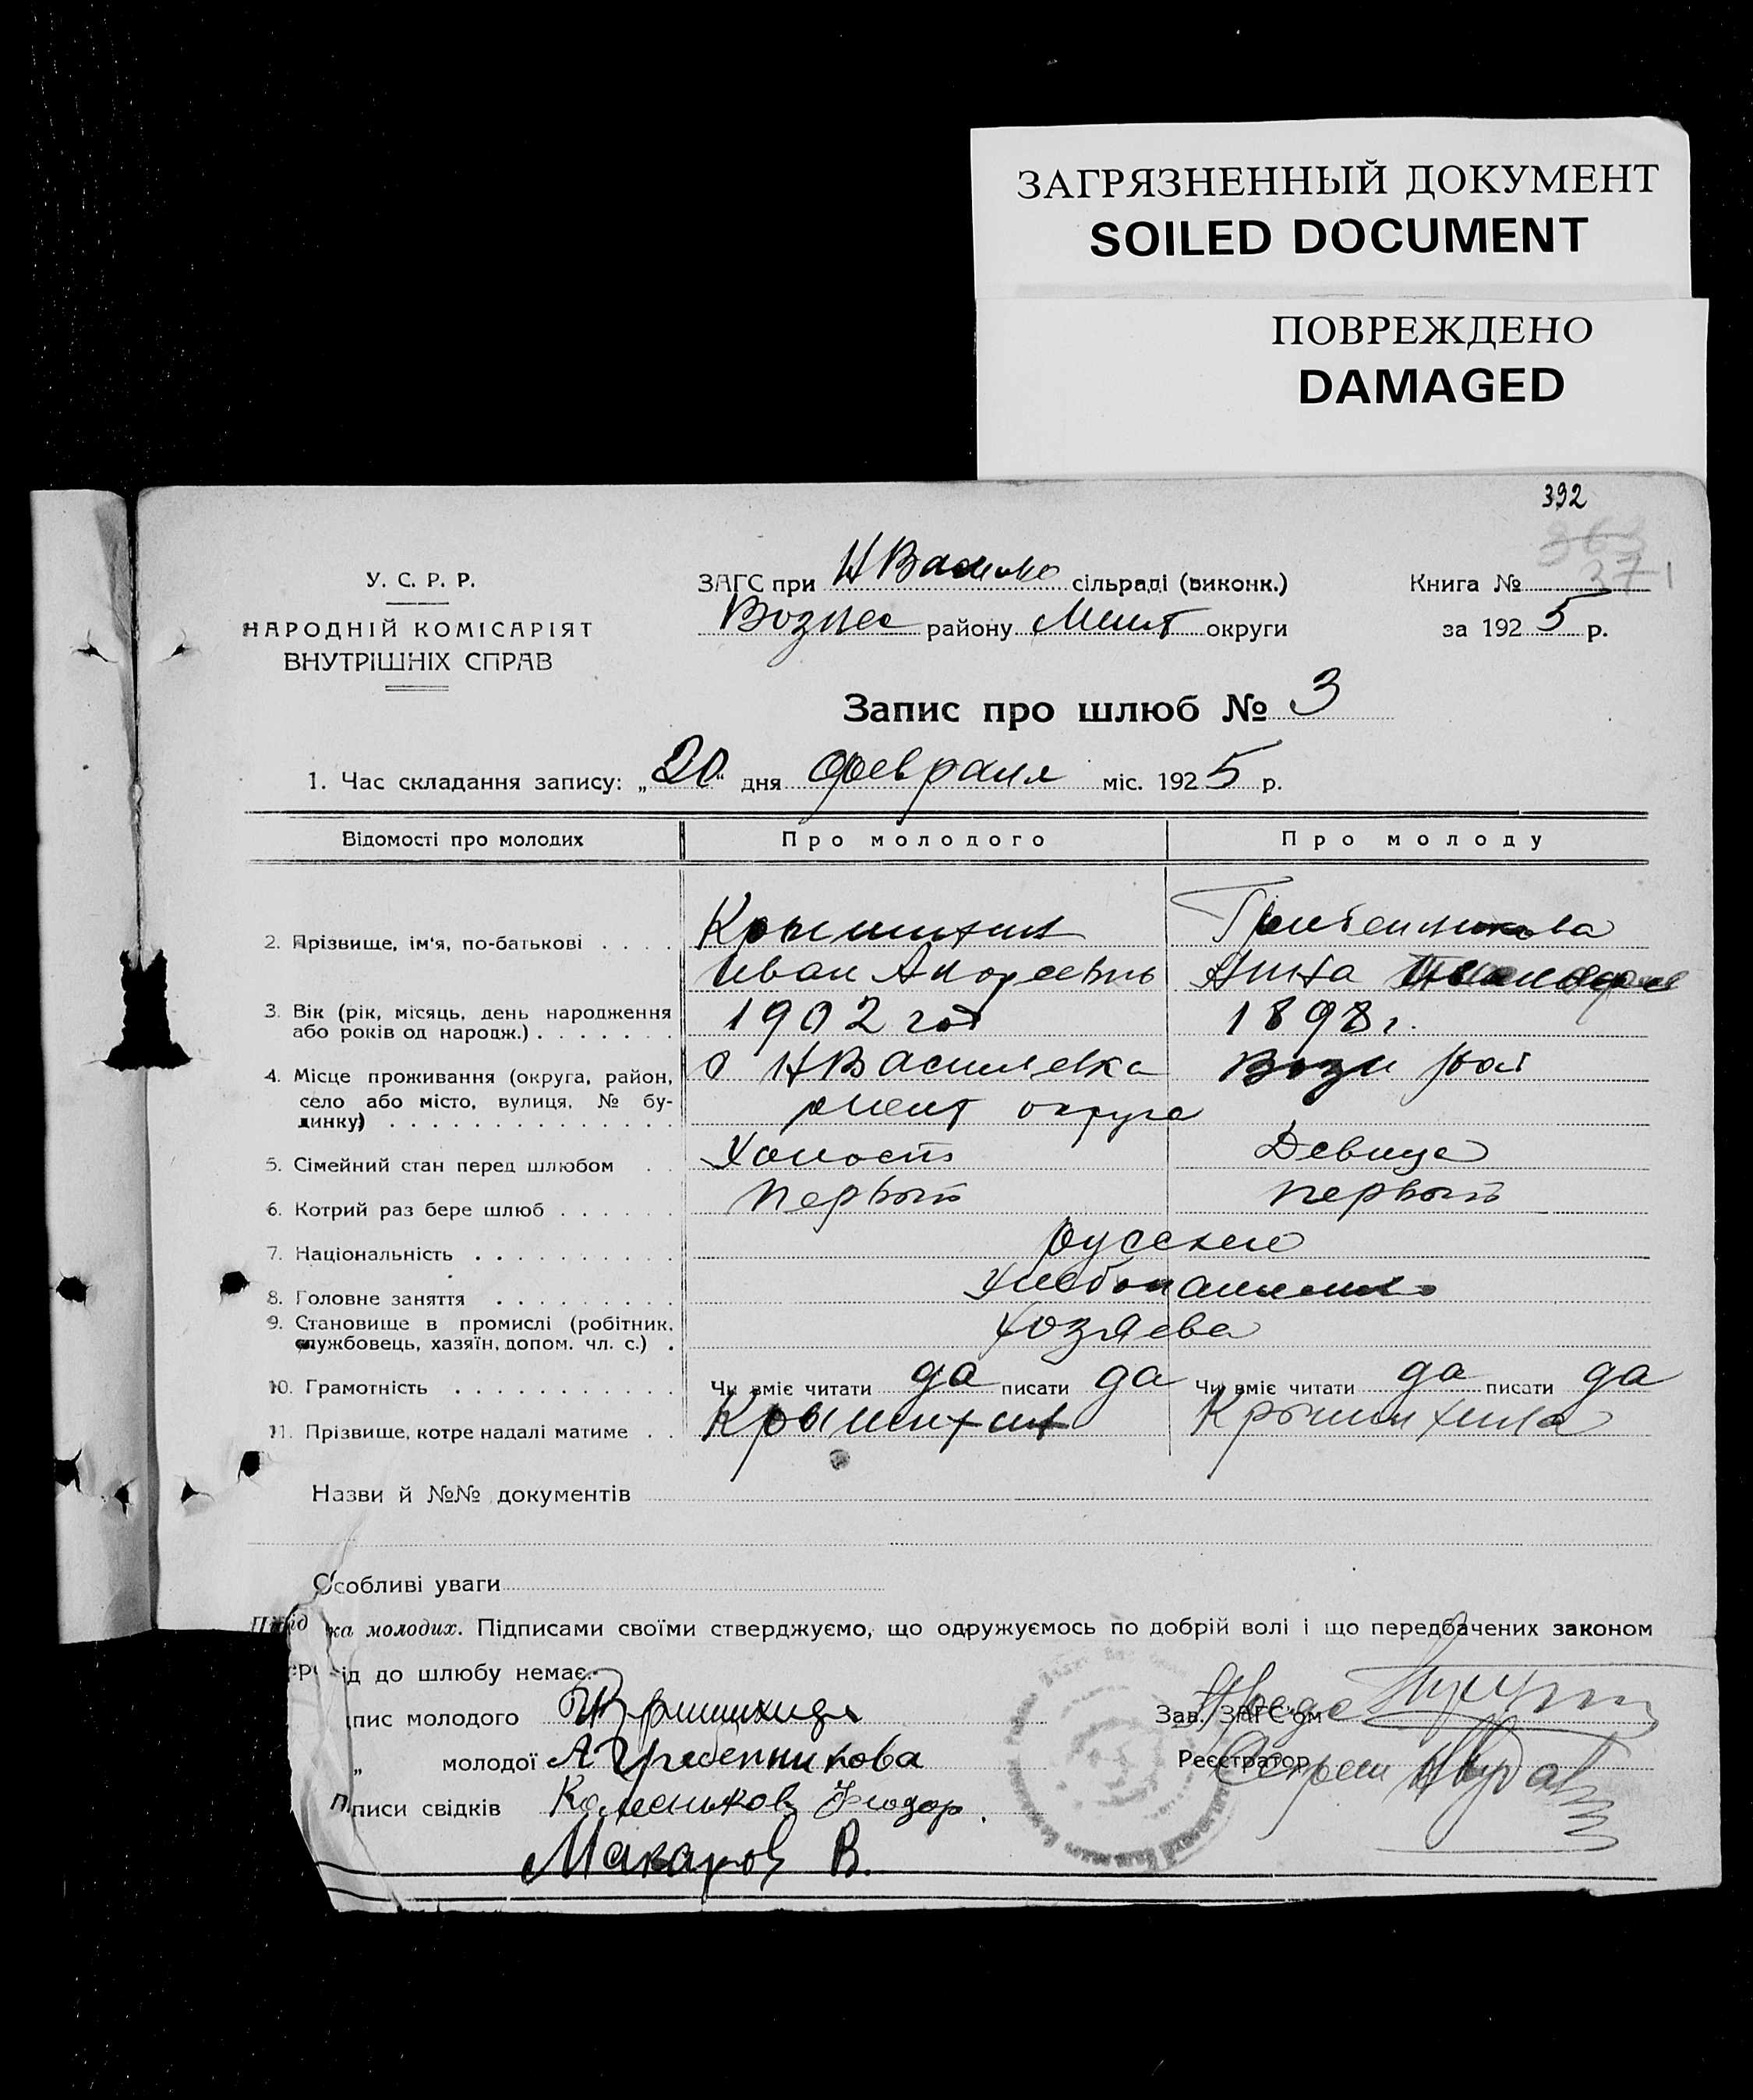 ЗАГРЯЗНЕННЫЙ ДОКУМЕНТ
SOILED DOCUMENT
ПОВРЕЖДЕНО
DAMAGED
392
У. С. Р. Р.
НАРОДНІЙ КОМІСАРІЯТ
ВНУТРІШНІХ СПРАВ
ЗАГС при НВасило сільраді (виконк.)
Вознес району Мелит округи
Книга № 371
за 1925 р.
Запис про шлюб № 3
1. Час складання запису: „20" дня февраля міс. 1925 р.
Відомості про молодих Про молодого Про молоду
2. Прізвище, ім'я, по-батькові . . . . Крышихин Гребенникова
Иван Андреевич Анна
3. Вік (рік, місяць, день народження 1902 год 1898 г.
або років од народж.) . . . . . . .
4. Місце проживання (округа, район, с НВасилевка Возн рай
село або місто, вулиця, № бу-
динку) . . . . . . . . . . . . . . мелит округа
5. Сімейний стан перед шлюбом . . Холост Девица
6. Котрий раз бере шлюб . . . . . . первый первый
7. Національність . . . . . . . . . . русские
8. Головне заняття . . . . . . . . . Хлебопашество
9. Становище в промислі (робітник, хозяева
службовець, хазяїн, допом. чл. с.) .
10. Грамотність . . . . . . . . . . . Чи вміє читати да писати да Чи вміє читати да писати да
11. Прізвище, котре надалі матиме . . Крышихин Крышихина
Назви й №№ документів
Особливі уваги
ка молодих. Підписами своїми стверджуємо, що одружуємось по добрій волі і що передбачених законом
ід до шлюбу немає.
пис молодого Крышихин
„ молодої А Гребенникова
писи свідків Колесников Феодор.
Макаров В.
Зав. ЗАГС'ом
Реєстратор